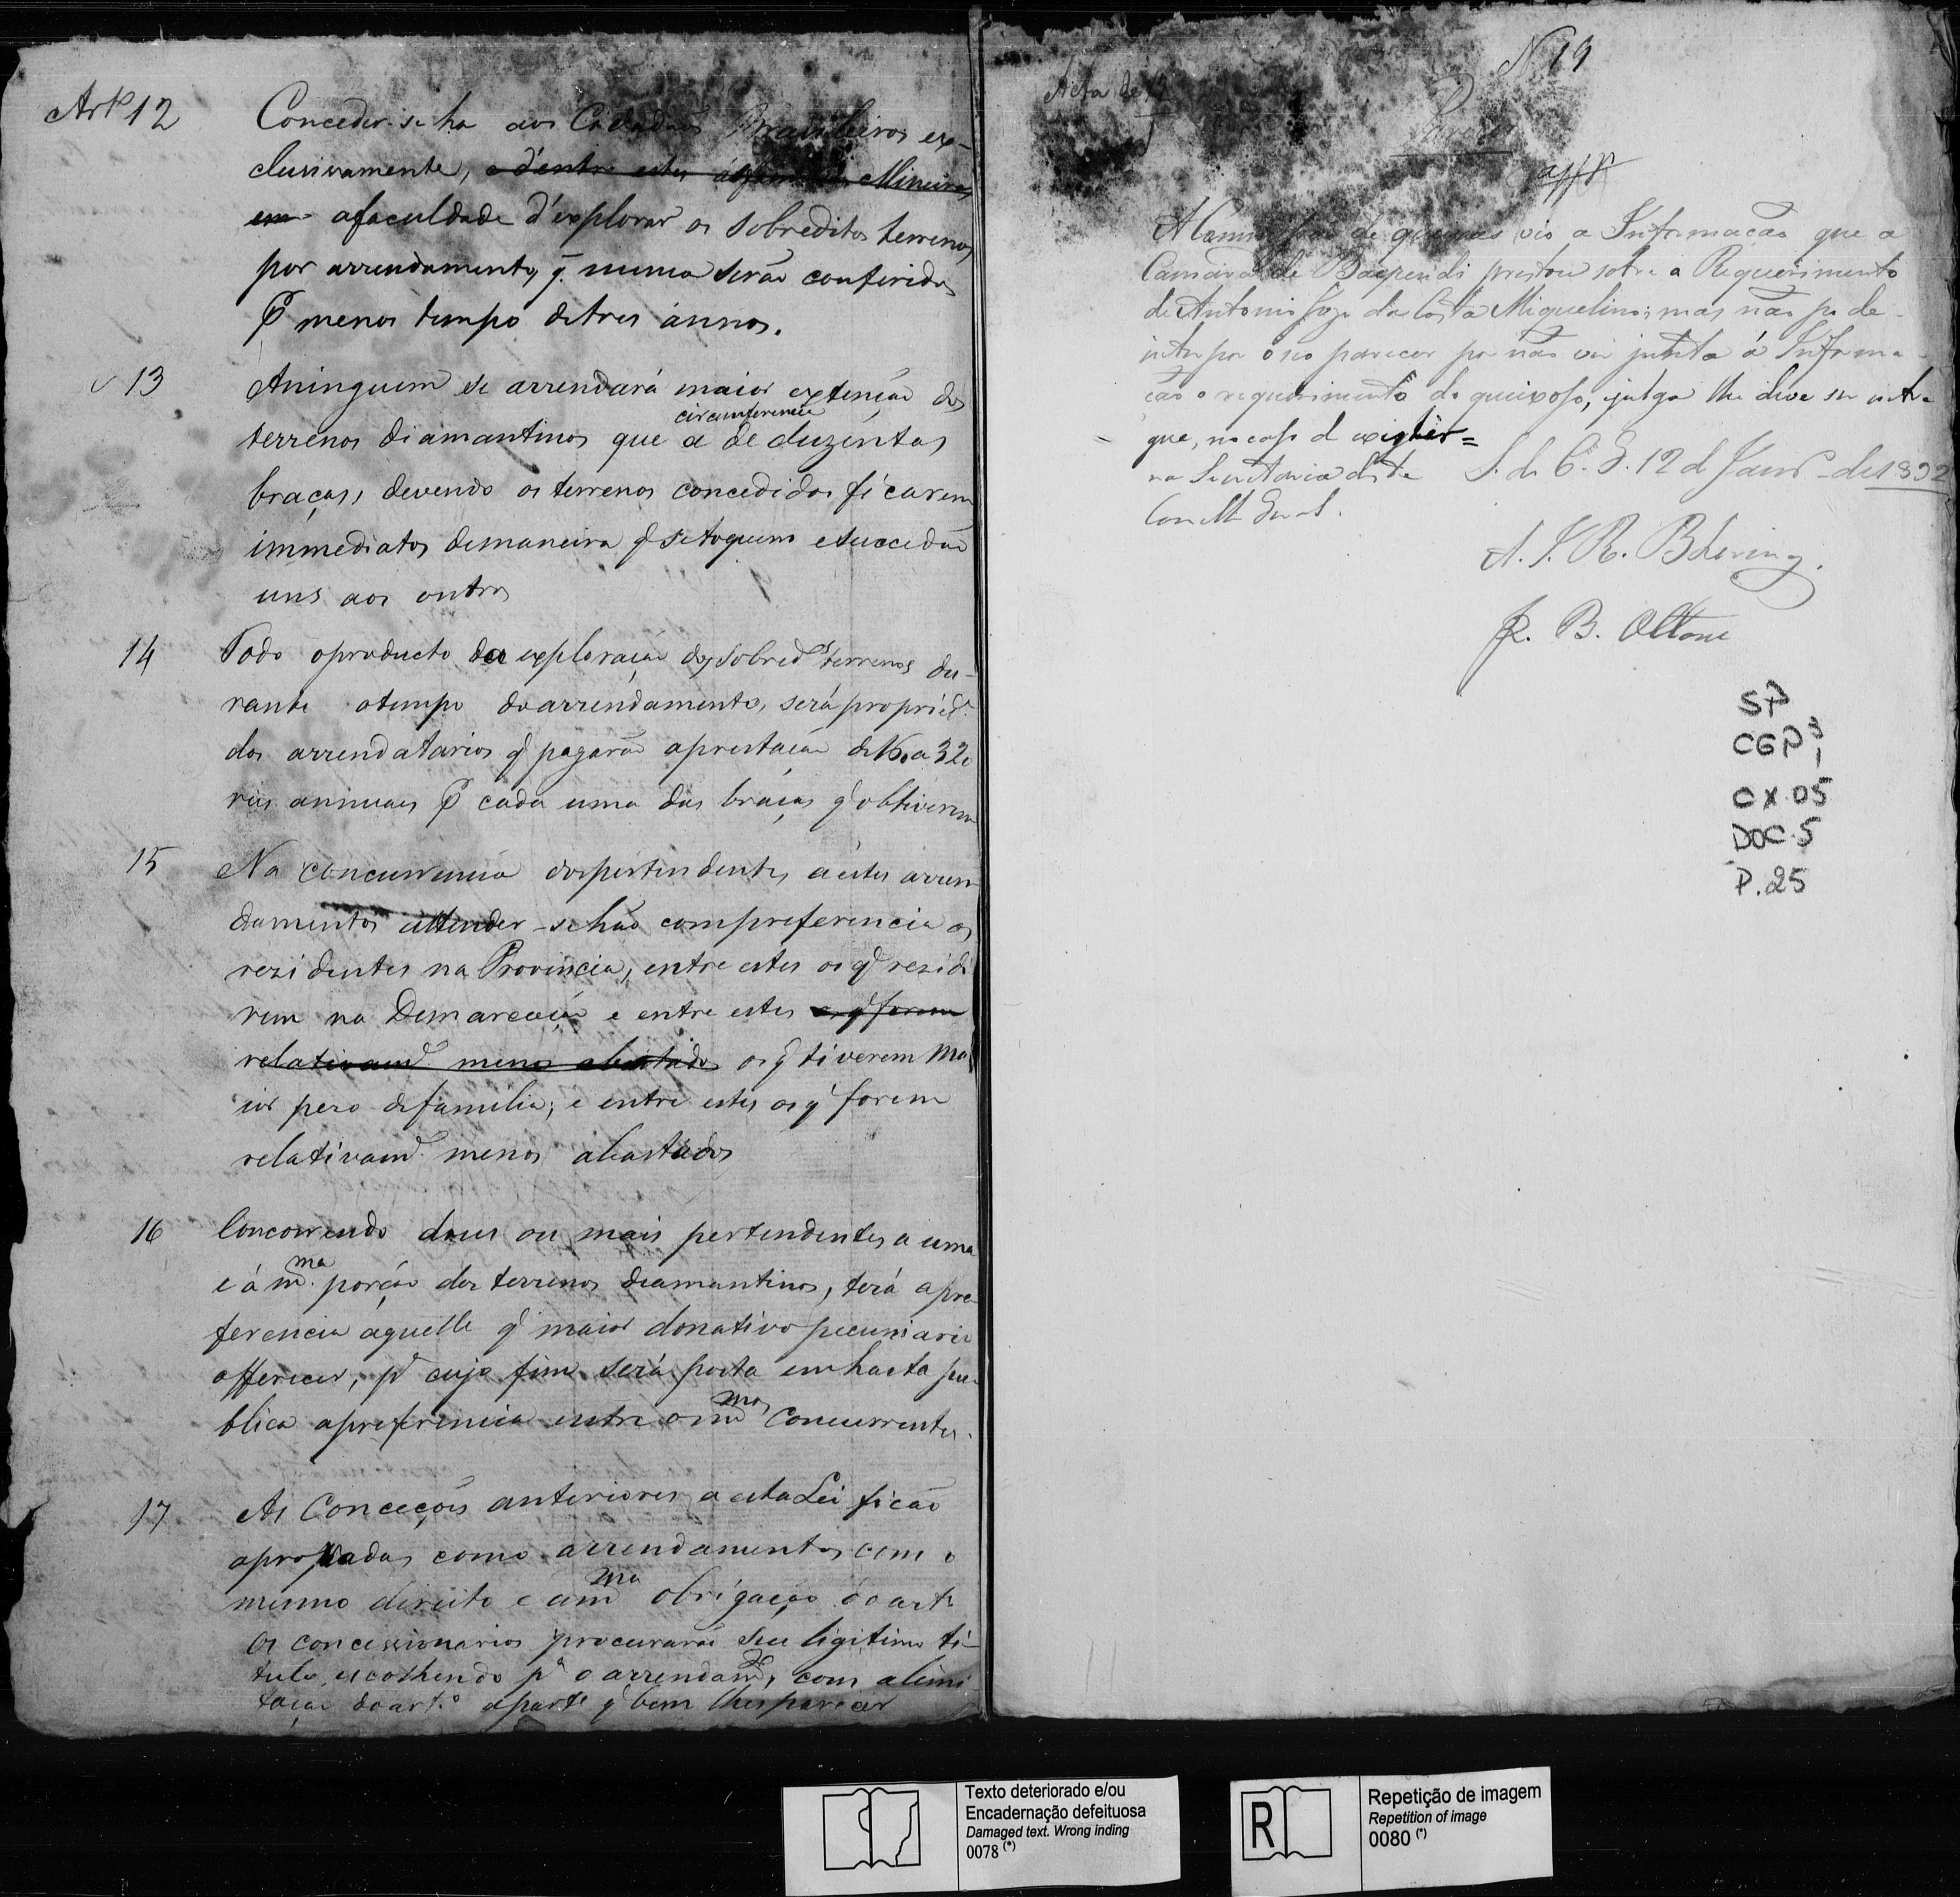 Artº 12 Conceder-se ha aos Cidadãos Brasileiros ex-
clusivamente, e d'entre estes Mineiros
em a faculdade d'explorar os sobreditos terrenos
por arrendamento, q̃. nunca serão conferidos
P menos tempo de tres ánnos.
13 Aninguem se arrendará maior extenção dos
circunferencia
terrenos diamantinos que a de duzentas
braças, devendo os terrenos concedidos ficarem
immediatos demaneira q̃ se toquem e succedão
uns aos outros
14 Todo oproducto da exploração dos sobredos terrenos du-
rante otempo doarrendamento, será propriede
dos arrendatarios q̃ pagarão aprestação de 160 a 320
reis annuaes P cada uma das braças q̃ obtiverem
15 Na concurrencia dos pertendentes a estes arren
damentos attender-se hão compreferencia os
rezidentes na Provincia, entre estes os q̃ rezidi
rem na Demarcação e entre estes os q̃ forem
relativamte menos abastados os q̃ tiverem ma
ior pezo defamilia; e entre estes os q̃ forem
relativamte menos abastados
16 Concorrendo dous ou mais pertendentes a uma
e á mma porção dos terrenos diamantinos, terá apre-
ferencia aquelle q̃ maior donativo pecuniario
offerecer, pa cujo fim será posta em hasta pu-
blica apreferencia entre os mmos concurrentes.
17 As Conceções anteriores a esta Lei ficão
aprovadas como arrendamentos com o
mesmo direito e a mma obrigação do arto
Os concessionarios procurarão seu ligitimo ti-
tulo, escolhendo pa o arrendamto, com alimi
tação do arto aparte q̃ bem lhes parecer
N 19
Acta de 12
Parecer
A Commissão de queixas vio a Informação que a
Camara de Baependi prestou sobre a Requerimento
de Antonio Joze da Costa Miquelino; mas não pode
interpor o seo parecer por não vir junta á Informa-
ção o requerimento do queixoso, e julga lhe deve ser entre
gue, no caso d exigir =
na Secretaria deste S. do C. G. 12 d Janrº de 1832
Conselho Geral.
A. J. R. Bhering.
J. B. Ottoni
SP
CGP³1
CX.05
DOC.5
P.25
Texto deteriorado e/ou
Encadernação defeituosa
Damaged text. Wrong inding
0078 (*)
R
Repetição de imagem
Repetition of image
0080 (*)